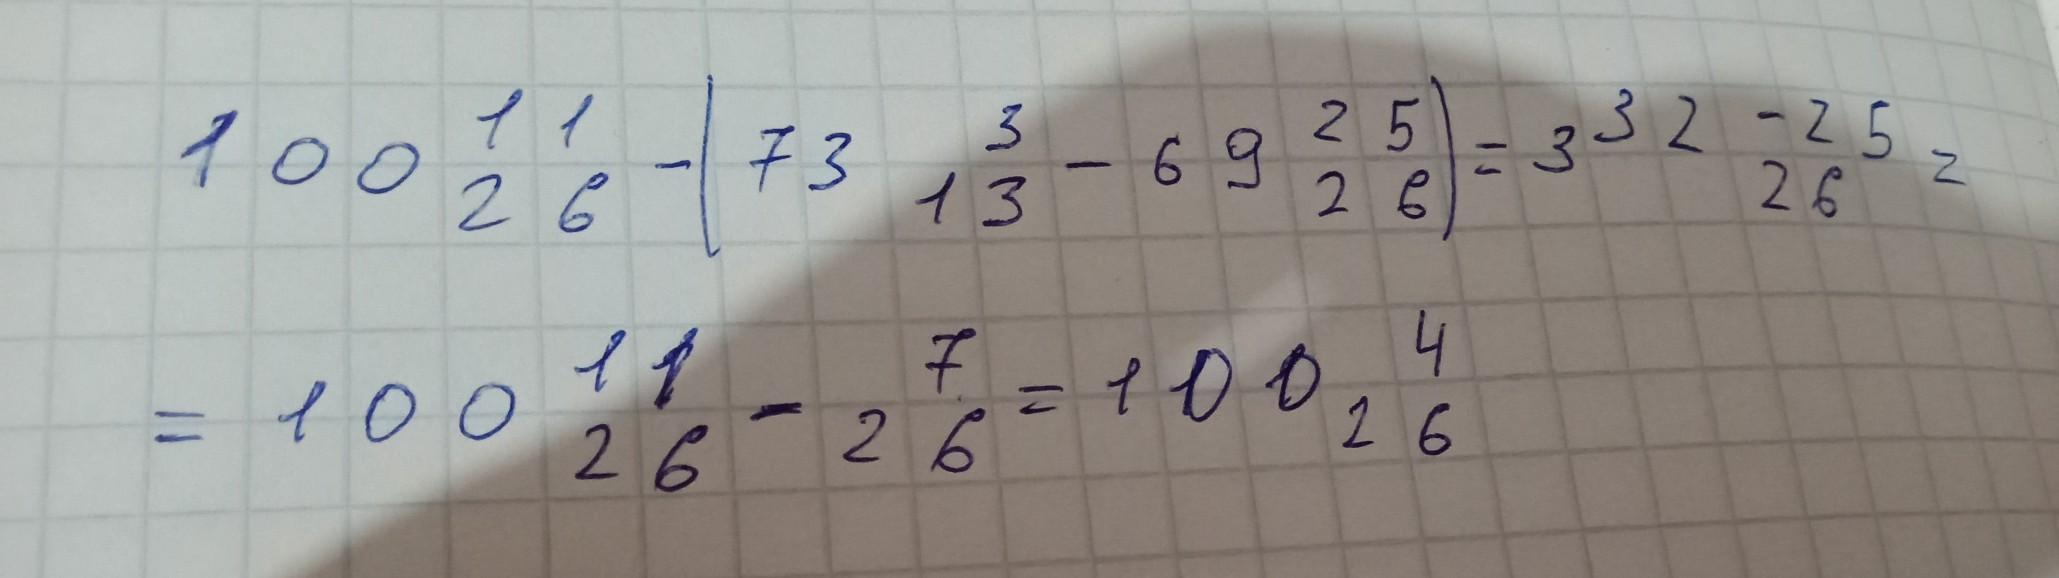 100 11/26 - (73 3/13 - 69 25/26) = 3 32-25/26 =
= 100 11/26 - 7/26 = 100 4/26